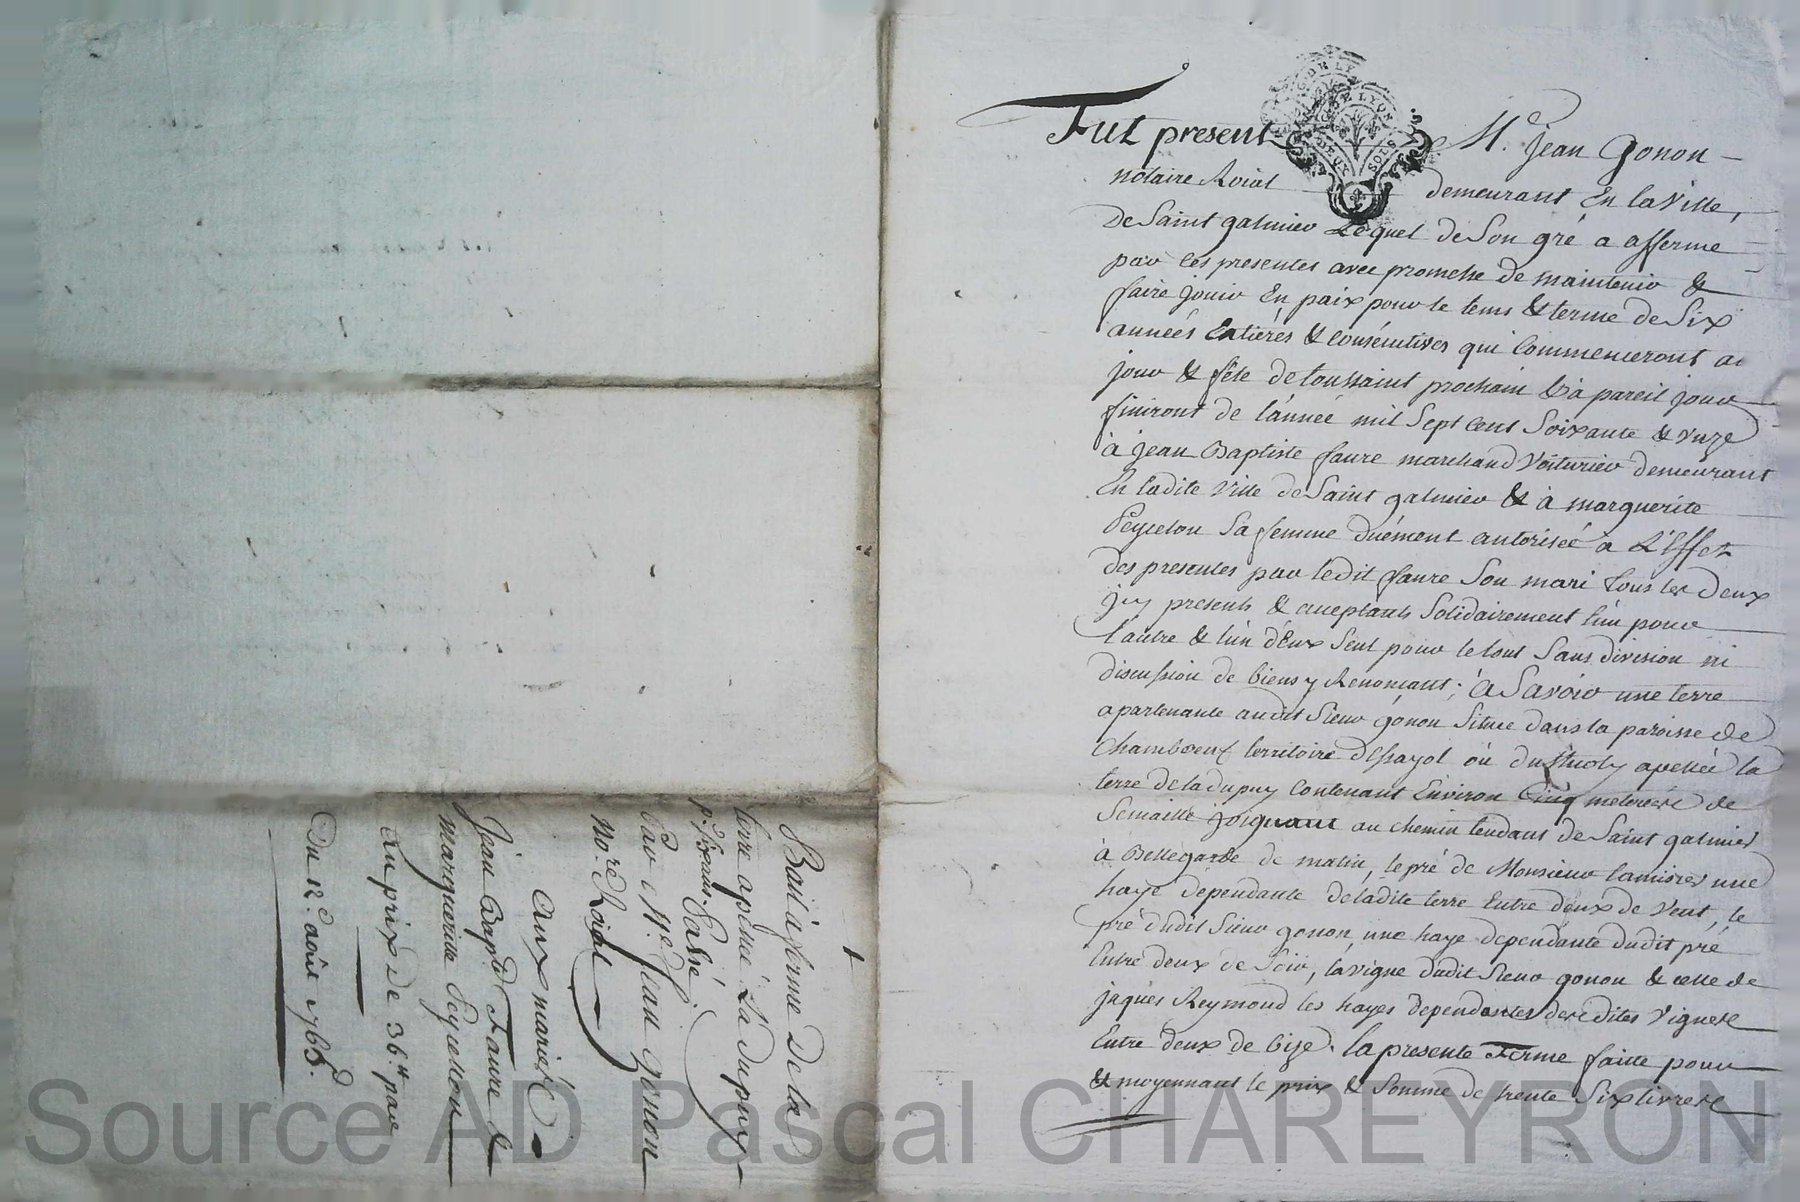 Bail à ferme de la
terre apellée La dupuy
Par Me. Jean Gonon
No.re Roial
Aux mariés
Jean Bapt. Faure &
marguerite Peycellon
Au prix de 36.# par
Du 12.e août 1765.
GEN. DE LYON
DEUX SOLS
Fut present Me. Jean Gonon
notaire Roial demeurant En la Ville,
De Saint galmier Lequel de Son gré a afferme
par ces presentes avec promesse de maintenir &
faire jouir En paix pour le tems & terme de Six
années Entières & consécutives qui Commenceront au
jour & fête de toussaint prochain & à pareil jour
finiront de l'année mil Sept Cent Soixante & unze
à Jean Baptiste faure marchand Voiturier demeurant
En ladite Ville de Saint galmier & à marguerite
Peycelon Sa femme duëment autorisée à L'Effet
des presentes par ledit faure Son mari tous les deux
icy presents & acceptants Solidairement l'un pour
l'autre & l'un d'Eux Seul pour le tout Sans division ni
discussion de biens y Renonçant; A Savoir une terre
apartenante audit Sieur gonon Située dans la paroisse de
Chamboeuf territoire d'Essayol où du apellée la
terre de la dupuy Contenant Environ Cinq meterées de
Semaille joignant au chemin tendant de Saint galmier
à Bellegarde de matin, le pré de Monsieur une
haye dépendante de ladite terre Entre deux de Vent, le
pré dudit Sieur gonon, une haye dependante dudit pré
Entre deux de Soir, la vigne dudit Sieur gonon & celle de
jaques Reymond les hayes dependantes desdites Vignes
Entre deux de bize. la presente Ferme faitte pour
& moyennant le prix & Somme de trente Six livres
Source AD Pascal CHAREYRON